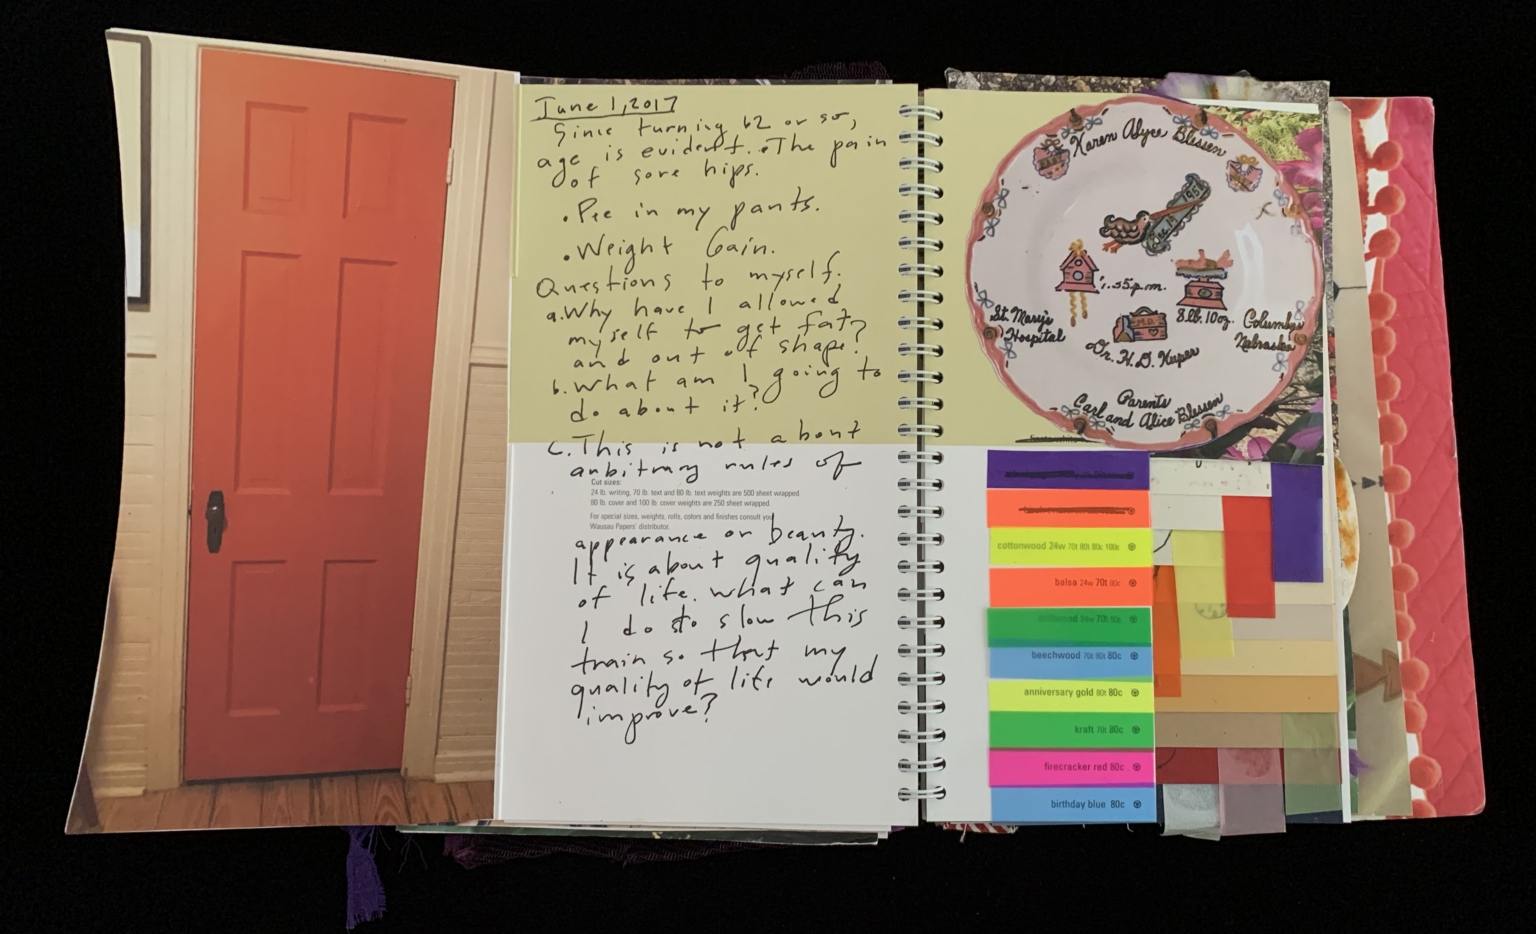 June 1, 2017
Since turning 62 or so,
age is evident. The pain
of sore hips.
• Pee in my pants.
• Weight Gain.
Questions to myself.
a. Why have I allowed
myself to get fat?
and out of shape?
b. What am I going to
do about it?
c. This is not about
arbitrary rules of
Cut sizes:
24 lb. writing, 70 lb. text and 80 lb. text weights are 500 sheet wrapped.
80 lb. cover and 100 lb. cover weights are 250 sheet wrapped.
For special sizes, weights, rolls, colors and finishes consult your
Wausau Papers' distributor.
appearance or beauty.
It is about quality
of life. What can
I do to slow this
train so that my
quality of life would
improve?
Karen Alyce Blessen
Dec. 19 1951
1:55 p.m.
8 lb. 10 oz.
St. Mary's
Hospital
M.D.
Dr. H. D. Kuper
Columbus
Nebraska
Parents
Carl and Alice Blessen
cottonwood 24w 70t 80t 80c 100c
balsa 24w 70t 80c
beechwood 70t 80t 80c
anniversary gold 80t 80c
kraft 70t 80c
firecracker red 80c
birthday blue 80c